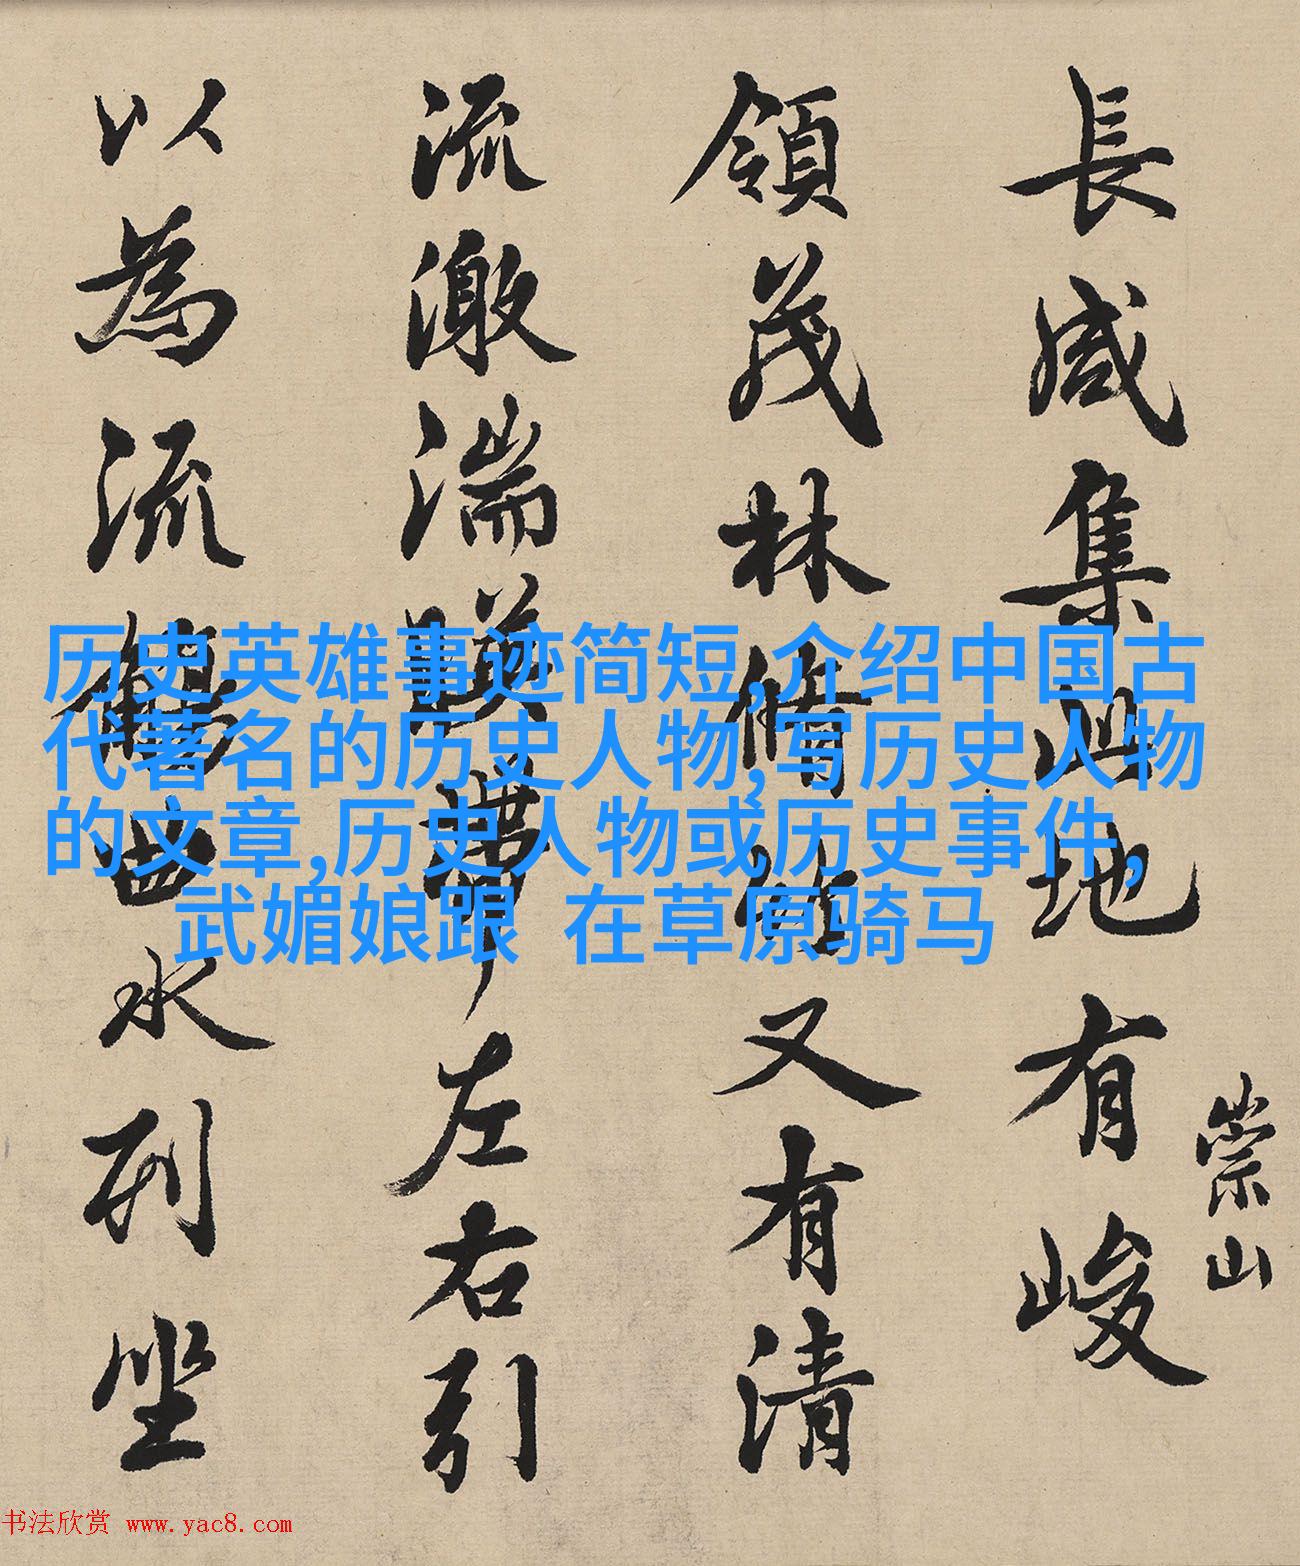 長咸集此地有峻
崇山
領茂林脩竹又有清
流激湍暎帶左右引
以為流觴曲水列坐
历史英雄事迹简短,介绍中国古
代著名的历史人物,写历史人物
的文章,历史人物或历史事件,
武媚娘跟 在草原骑马
书法欣赏 www.yac8.com